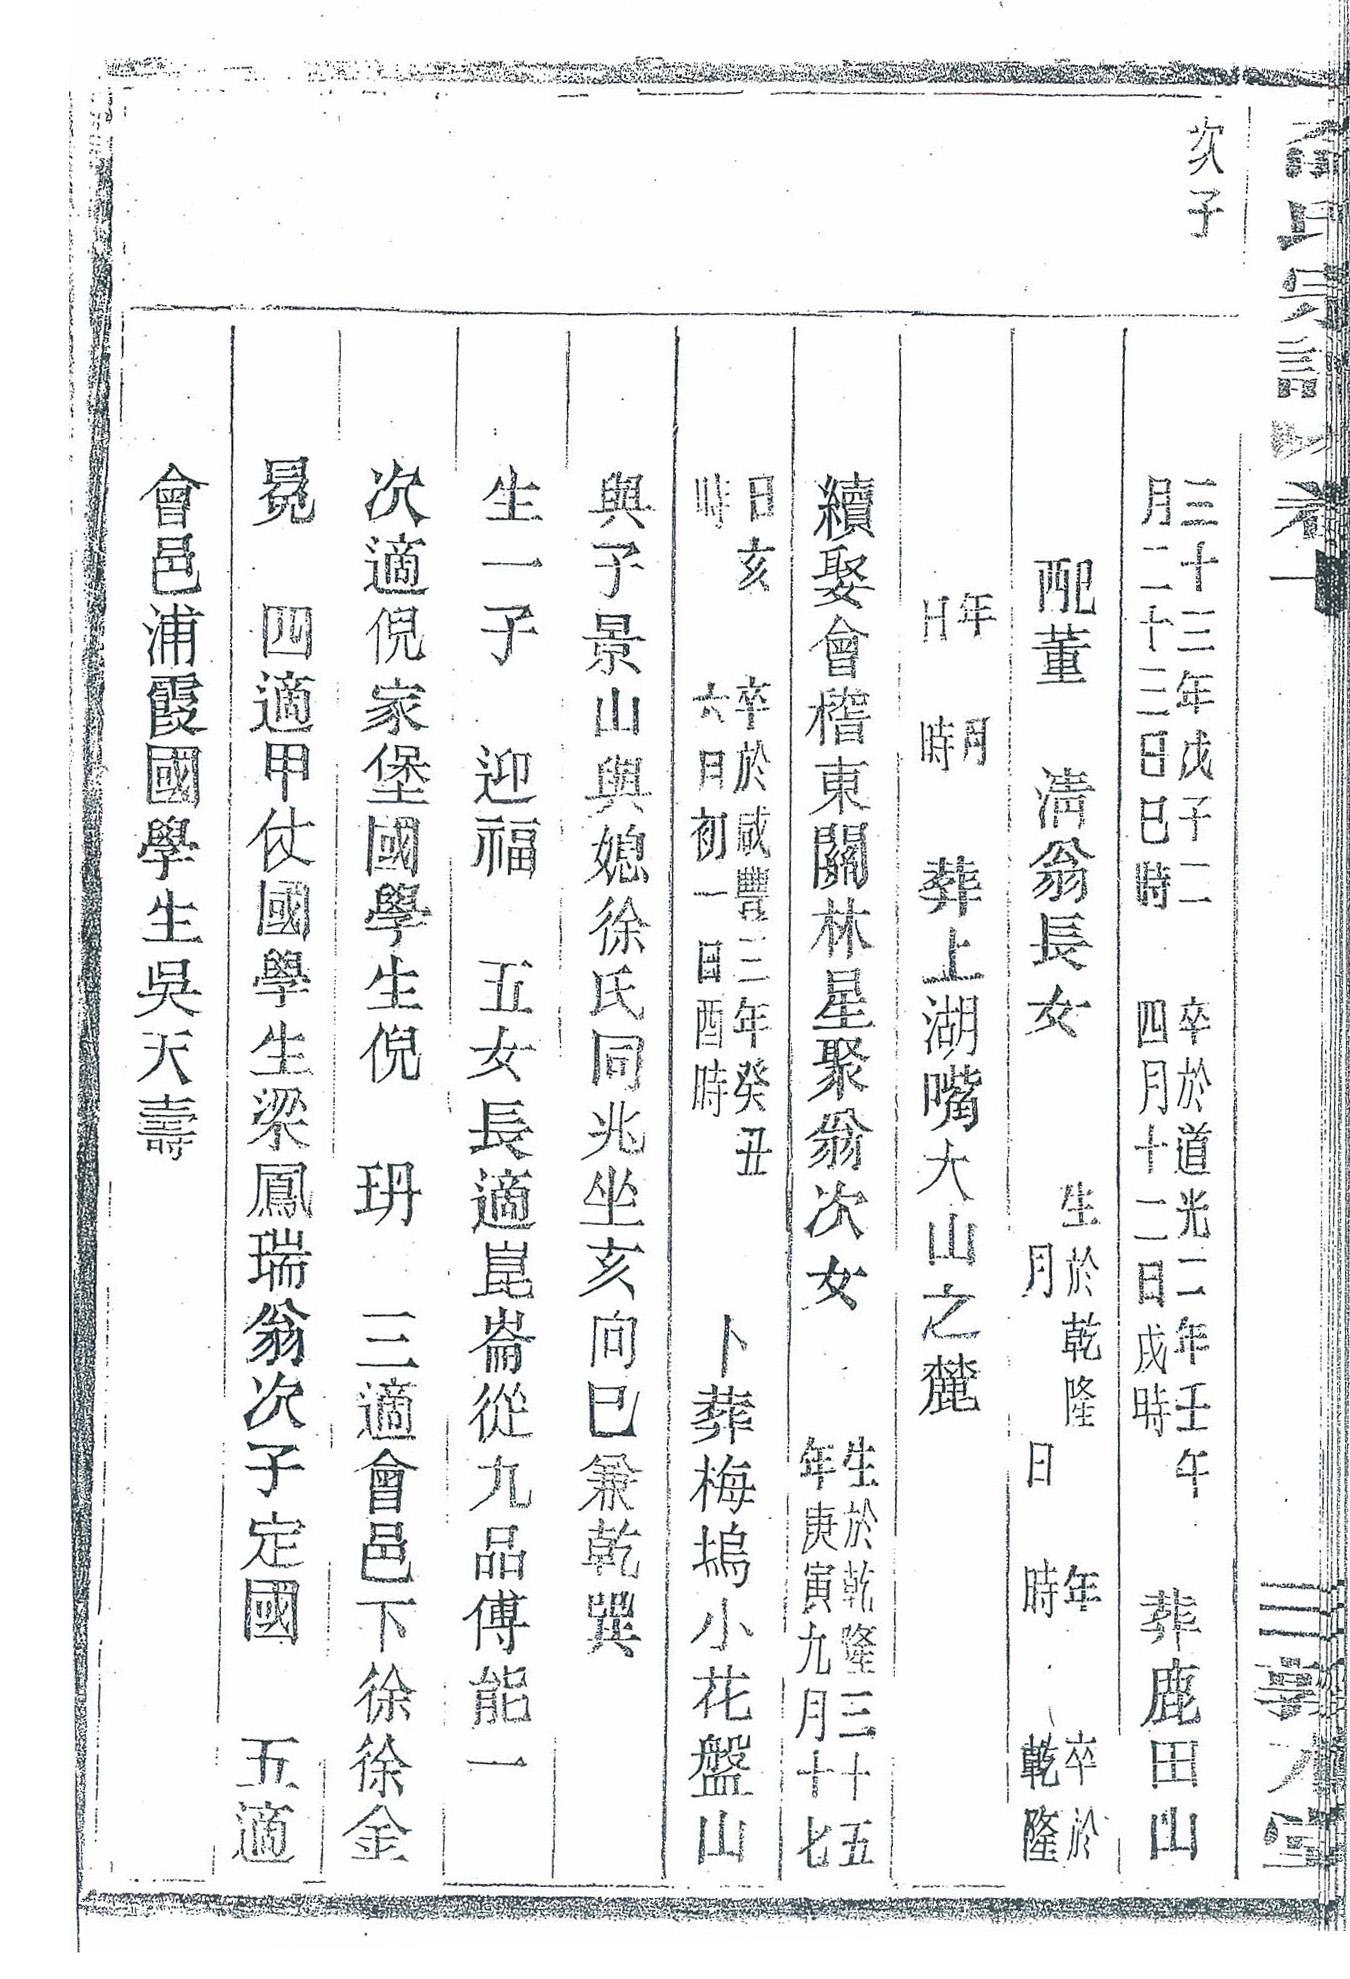 次子
三十三年戊子二
月二十三日巳時
卒於道光二年壬午
四月十二日戌時
葬鹿田山
配董 淸翁長女
生於乾隆 年
月 日 時
卒於
乾隆
年 月
日 時
葬上湖嘴大山之麓
續娶會稽東關林星聚翁次女
生於乾隆三十五
年庚寅九月十七
日亥
時
卒於咸豐三年癸丑
六日初一日酉時
卜葬梅塢小花盤山
與子景山與媳徐氏同兆坐亥向巳兼乾巽
生一子 迎福 五女長適崑崙從九品傅能一
次適倪家堡國學生倪 玥 三適會邑下徐徐金
晃 四適甲仗國學生梁鳳瑞翁次子定國 五適
會邑浦霞國學生吳天壽